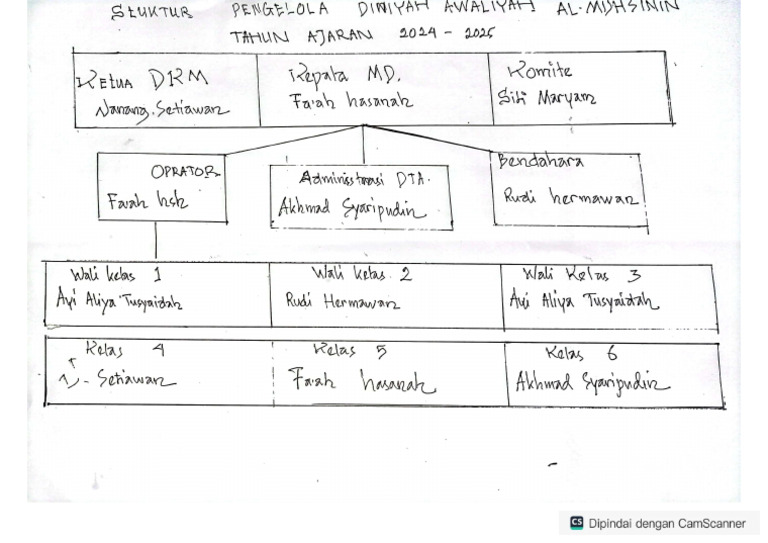 STUKTUR PENGELOLA DINIYAH AWALIYAH AL-MUHSININ
TAHUN AJARAN 2024 - 2025
Ketua DKM
Nanang. Setiawan
Kepala MD.
Farah hasanah
Komite
Siti Maryam
OPRATOR
Farah hsh
Administrasi DTA.
Akhmad Syaripudin
Bendahara
Rudi hermawan
Wali kelas 1
Ayi Aliya Tusyaidah
Wali kelas 2
Rudi Hermawan
Wali Kelas 3
Ayi Aliya Tusyaidah
Kelas 4
N - Setiawan
Kelas 5
Farah hasanah
Kelas 6
Akhmad Syaripudin
CS Dipindai dengan CamScanner